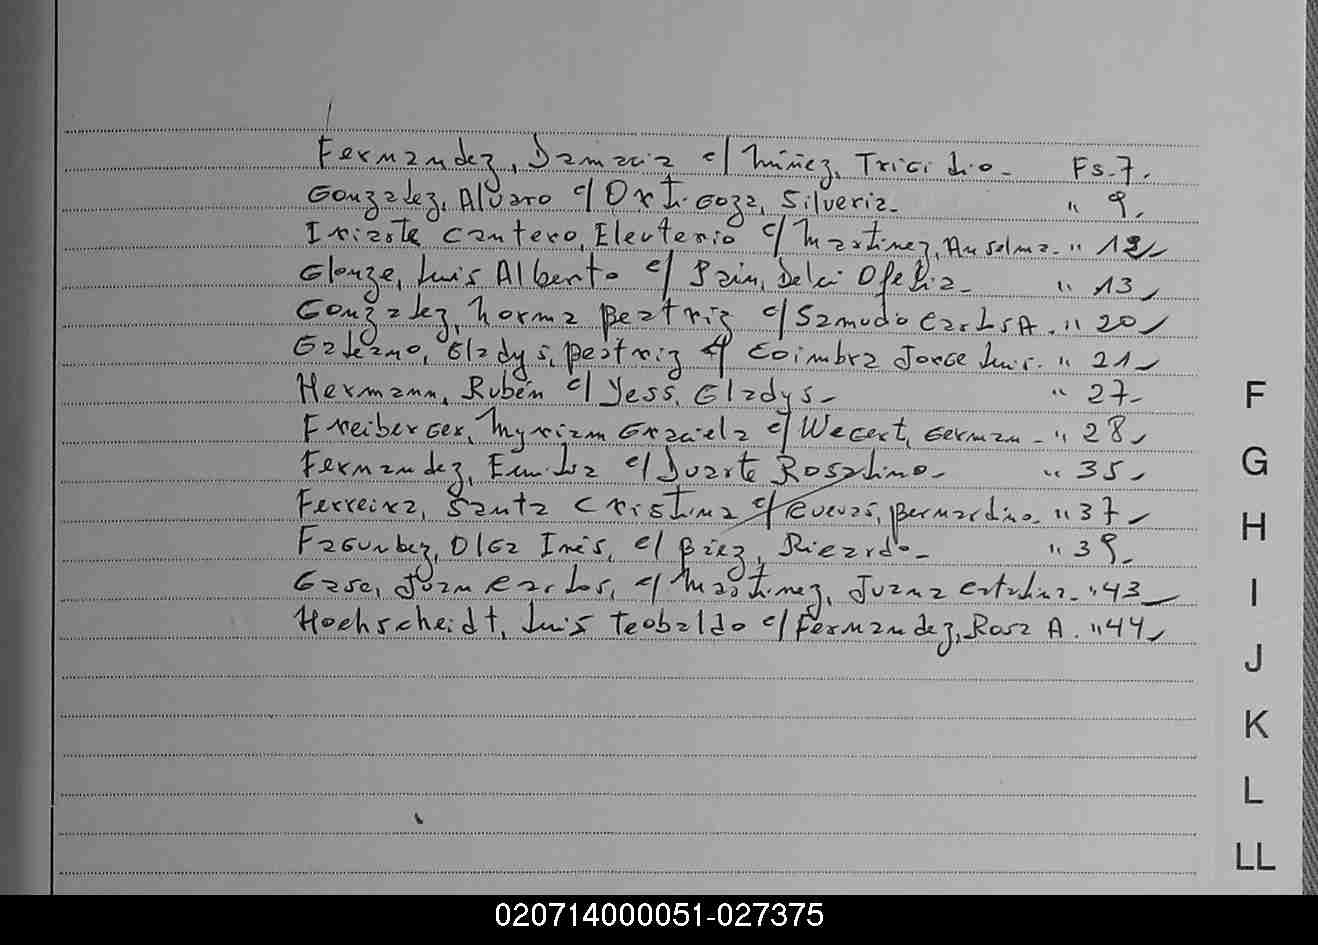 Fernandez, Damacia c/ Núñez, Tricidio - Fs. 7.
Gonzalez, Alvaro c/ Ortigoza, Silveria - " 9.
Iriarte Cantero, Eleuterio c/ Martinez, Anselma. " 12
Glonze, Luis Alberto c/ Pain, Delci Ofelia - " 13
Gonzalez, Norma Beatriz c/ Samudio Carlos A. " 20
Galeano, Gladys, Beatriz c/ Coimbra Jorge Luis. " 21
Hermann, Rubén c/ Yess, Gladys - " 27-
Freiberger, Myriam Graciela c/ Wegert, German - " 28
Fernandez, Emilia c/ Duarte Rosalino - " 35
Ferreira, Santa Cristina c/ Cuevas, Bernardino. " 37
Fagundez, Olga Inés, c/ Báez, Ricardo - " 39.
Gase, Juan Carlos, c/ Martinez, Juana Catalina - " 43
Hochscheidt, Luis Teobaldo c/ Fernandez, Rosa A. " 44
F
G
H
I
J
K
L
LL
020714000051-027375